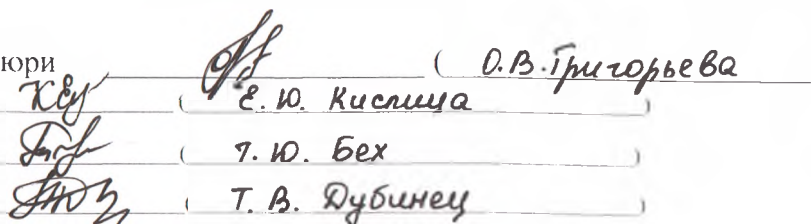 юри ( О.В. Григорьева
( Е. Ю. Кислица )
( Т. Ю. Бех )
( Т. В. Дубинец )